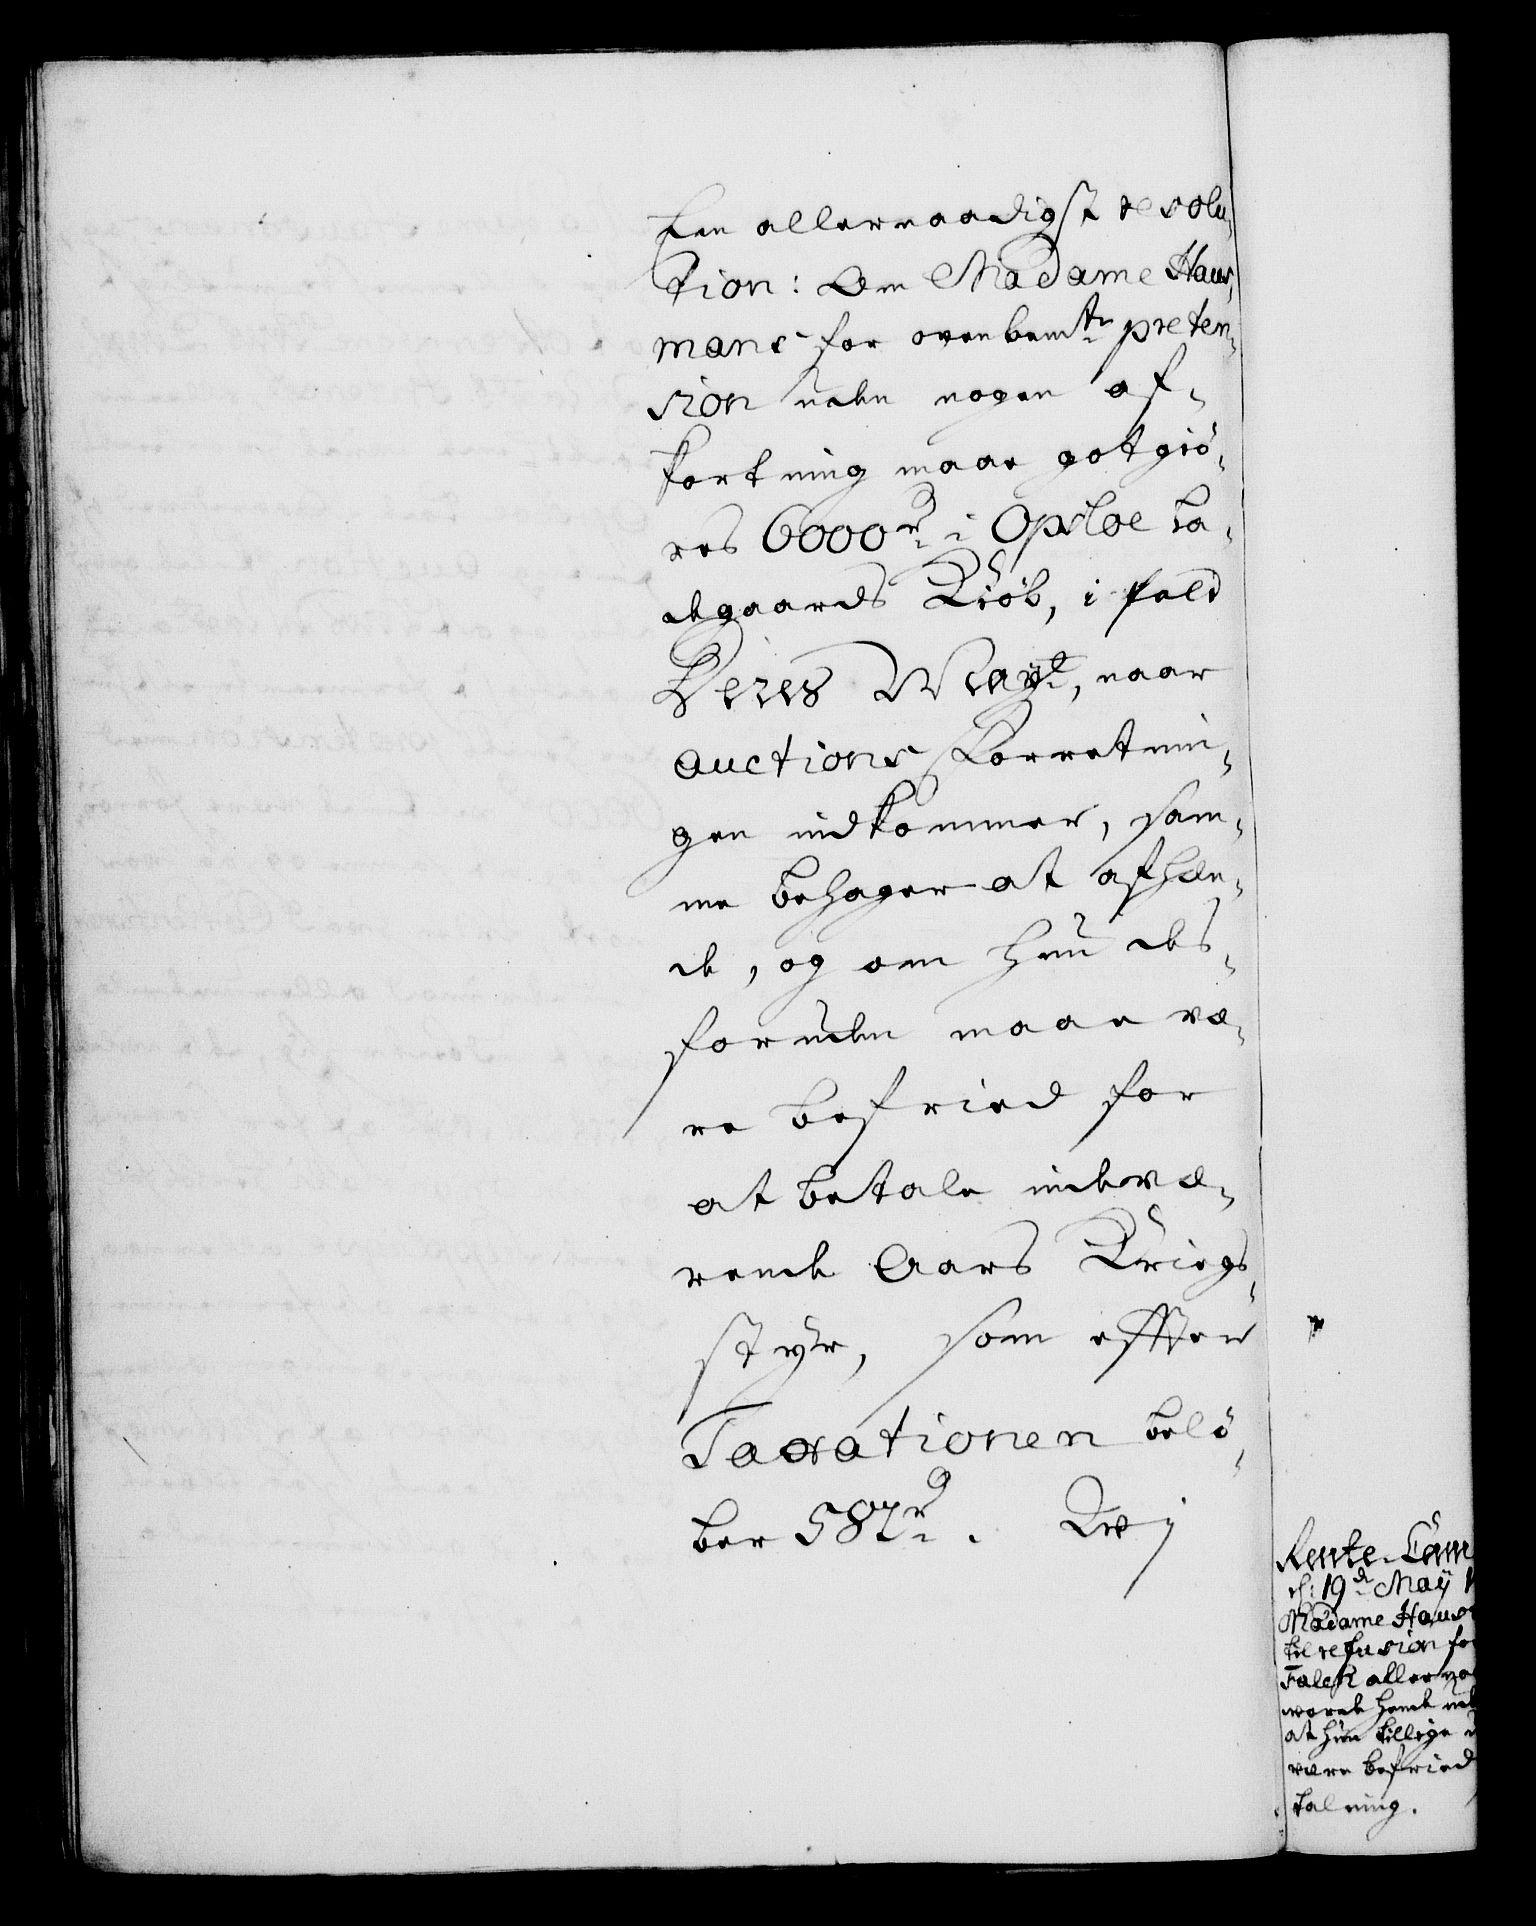 Een allernaadigst resolu-
tion: Om Madame Haus-
mans for ovenbemte preten-
sion uden nogen af-
kortning maae godtgiö-
res 6000 rd i Opsloe La-
degaards Kiöb, i fald
Deres Mayt, naar
Auctions Forretnin-
gen indkommer, sam-
me behager at afhæn-
de, og om hun des-
foruden maae væ-
re befried for
at betale indevæ-
rende Aars Kriegs-
styr, som efter
Taxationen belö-
ber 582 rd.
Rente-Cam
d: 19de May 1
Madame Haus
til refusion for
Falch allerna
vorde hende
at hun tillige
være befried
talning.